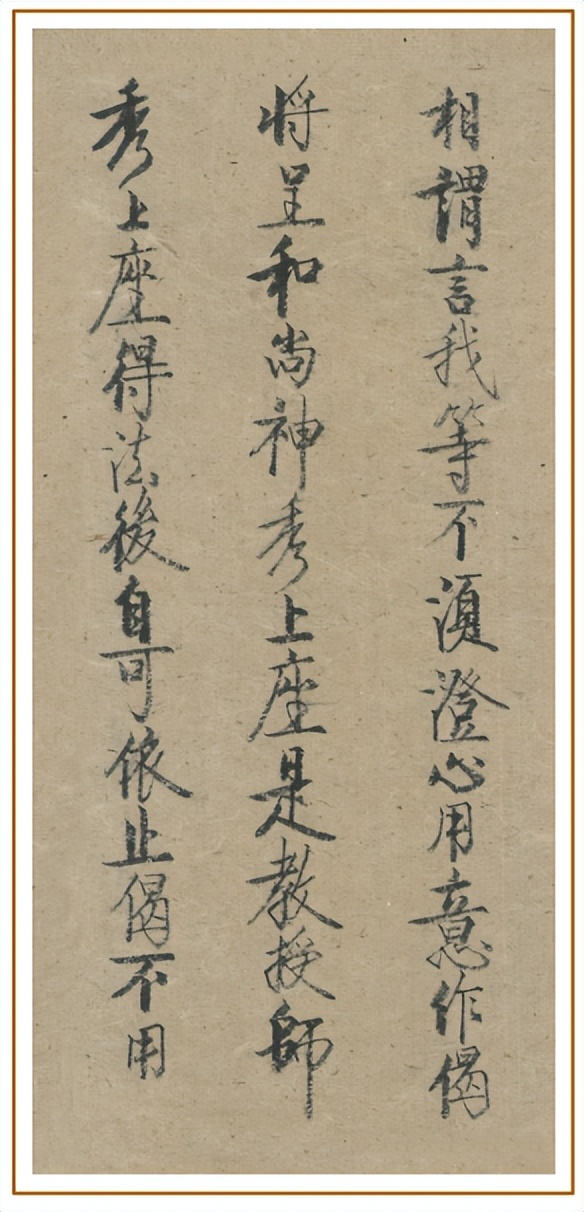 相謂言我等不湏澄心用意作偈
将呈和尚神秀上座是教授師
秀上座得法後自可依止偈不用